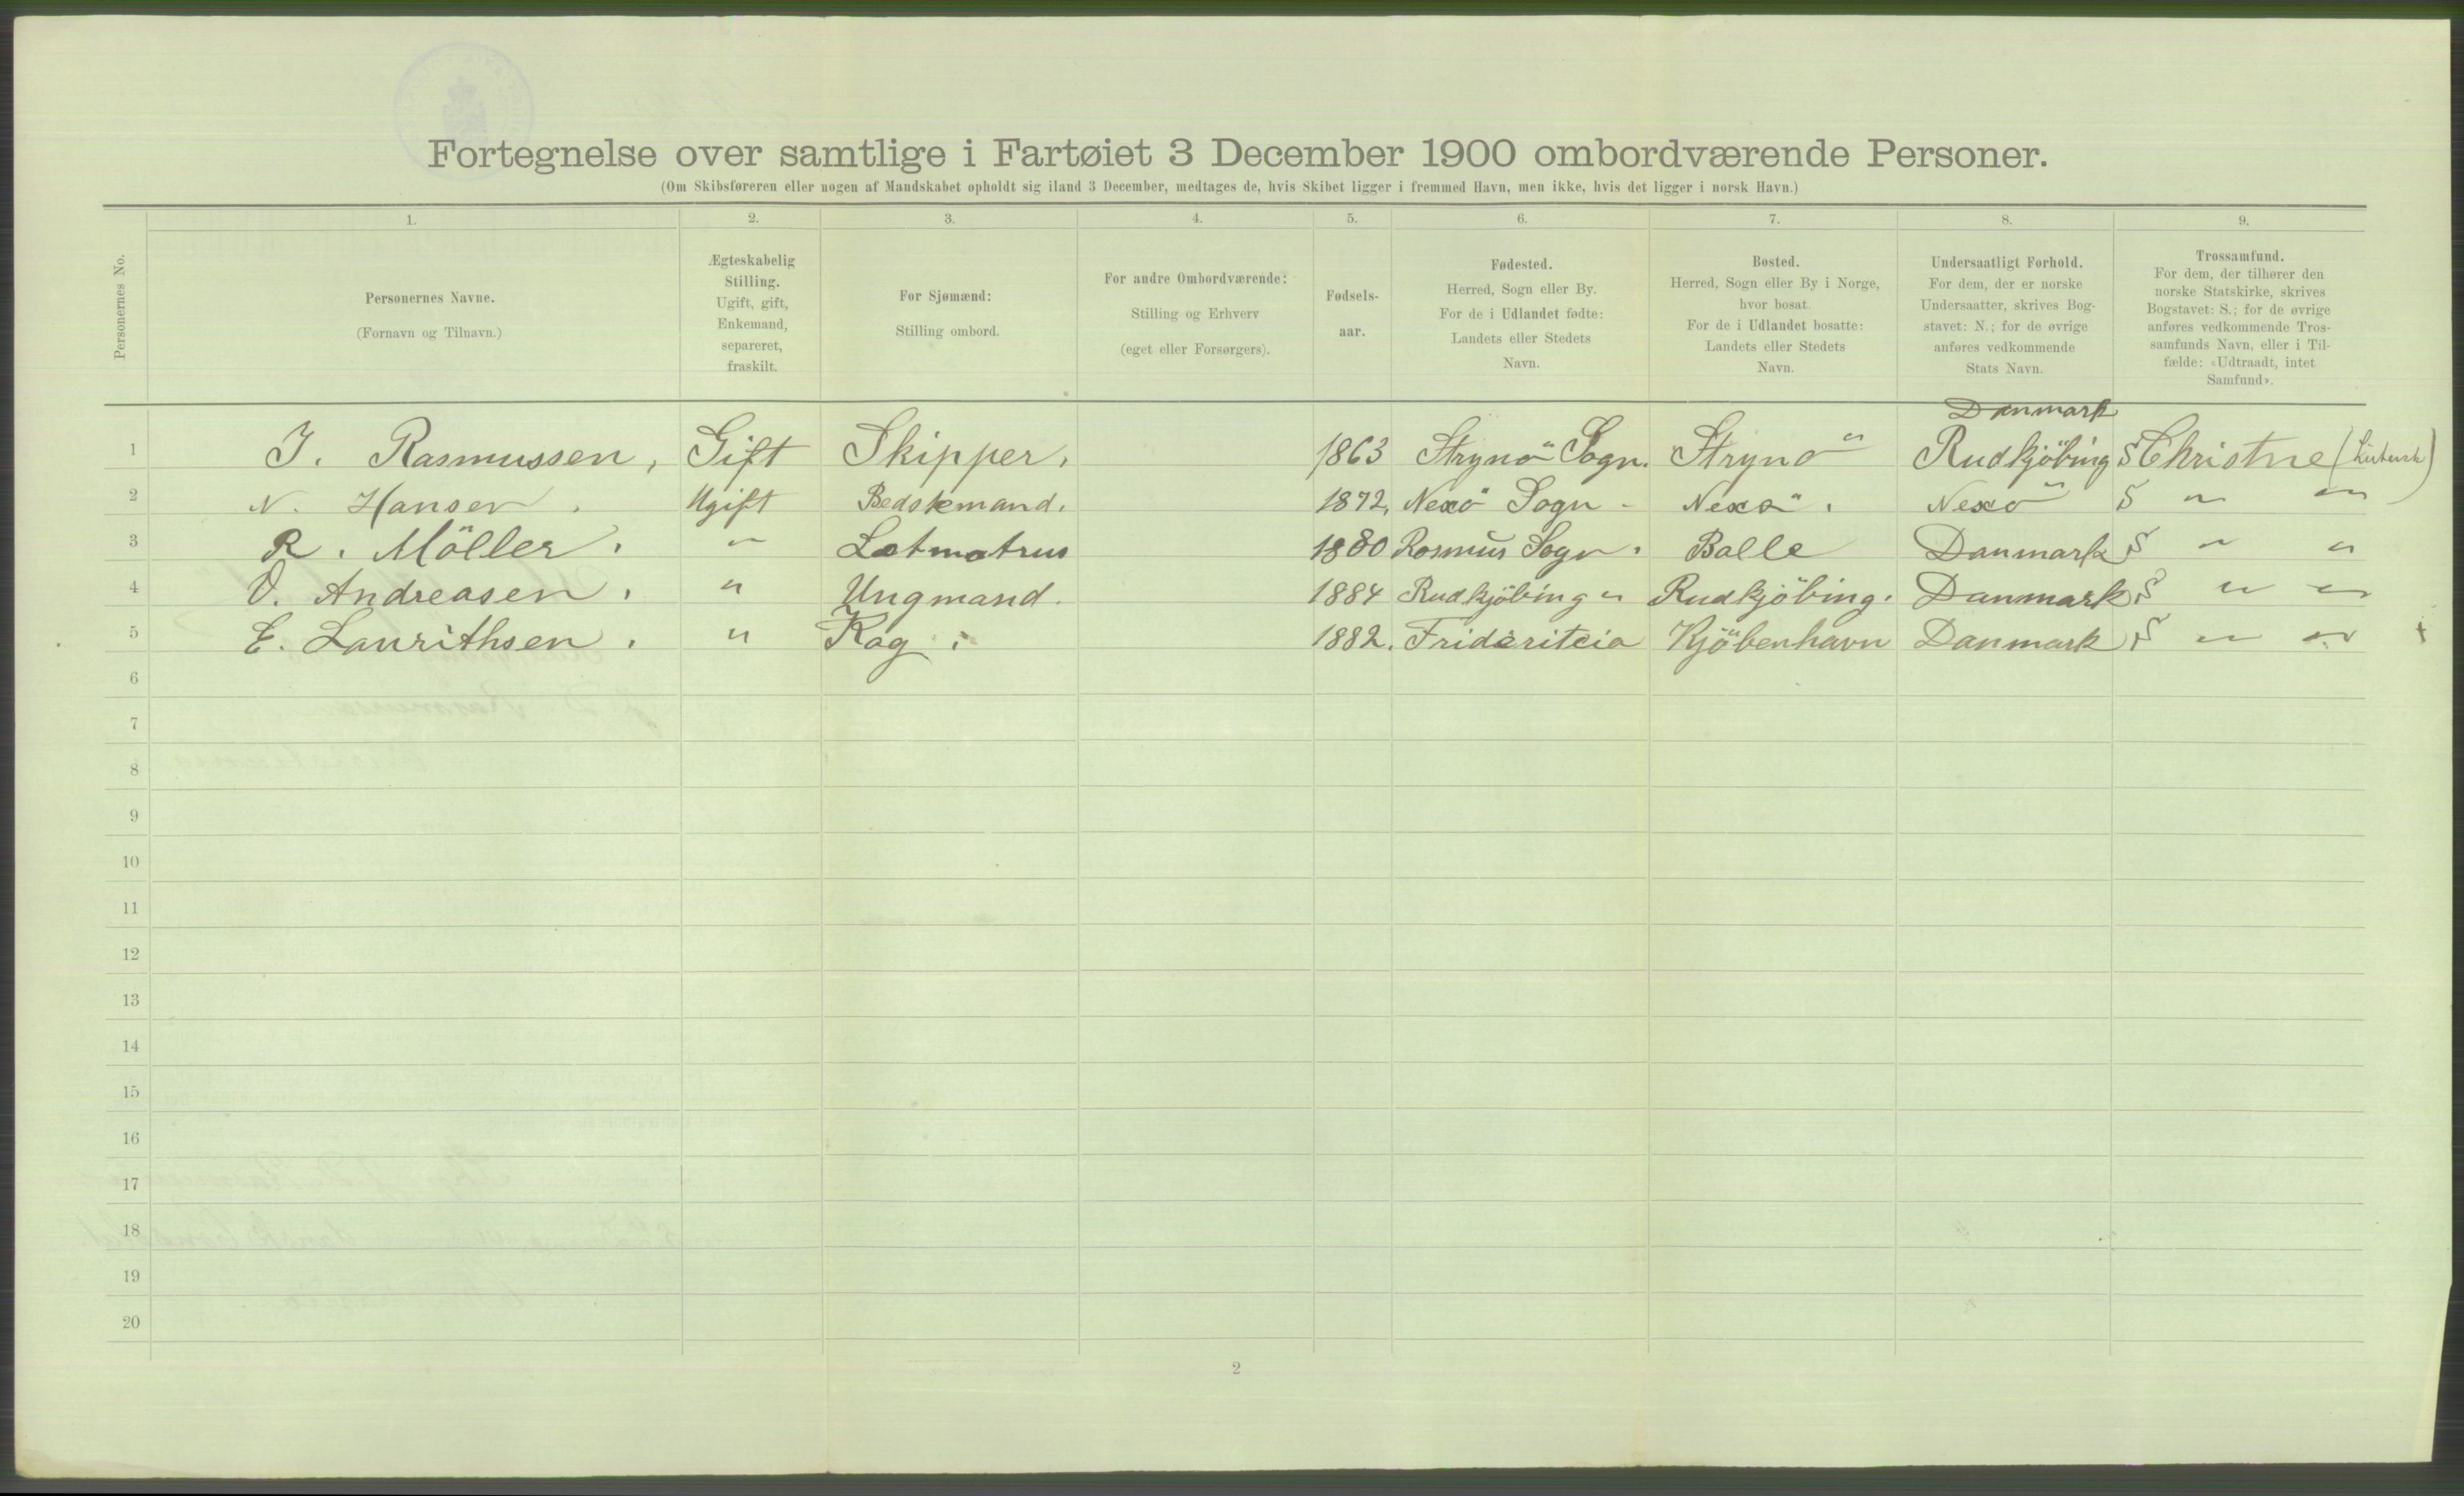 Fortegnelse over samtlige i Fartøiet 3 December 1900 ombordværende Personer.
(Om Skibsføreren eller nogen af Mandskabet opholdt sig iland 3 December, medtages de, hvis Skibet ligger i fremmed Havn, men ikke, hvis det ligger i norsk Havn.)
Personernes No.
1.
Personernes Navne.
(Fornavn og Tilnavn.)
2.
Ægteskabelig
Stilling.
Ugift, gift,
Enkemand,
separeret,
fraskilt.
3.
For Sjømænd:
Stilling ombord.
4.
For andre Ombordværende:
Stilling og Erhverv
(eget eller Forsørgers).
5.
Fødsels-
aar.
6.
Fødested.
Herred, Sogn eller By.
For de i Udlandet fødte:
Landets eller Stedets
Navn.
7.
Bosted.
Herred, Sogn eller By i Norge,
hvor bosat.
For de i Udlandet bosatte:
Landets eller Stedets
Navn.
8.
Undersaatligt Forhold.
For dem, der er norske
Undersaatter, skrives Bog-
stavet: N.; for de øvrige
anføres vedkommende
Stats Navn.
9.
Trossamfund.
For dem, der tilhører den
norske Statskirke, skrives
Bogstavet: S.; for de øvrige
anføres vedkommende Tros-
samfunds Navn, eller i Til-
fælde: «Udtraadt, intet
Samfund».
Danmark
1 J. Rasmussen, Gift Skipper. 1863 Strynö Sogn. Strynö Rudkjöbing S Christne
2 N. Hansen. Ugift Bedstemand. 1872, Nexö Sogn - Nexö. Nexö S " "
3 R. Möller. " Letmatrus 1880 Rosmus Sogn. Balle Danmark S " "
4 O. Andreasen. " Ungmand. 1884 Rudkjöbing " Rudkjöbing. Danmark S " "
5 E. Laurithsen. " Kog : 1882. Fridèriteia Kjöbenhavn Danmark S " "
6
7
8
9
10
11
12
13
14
15
16
17
18
19
20
2